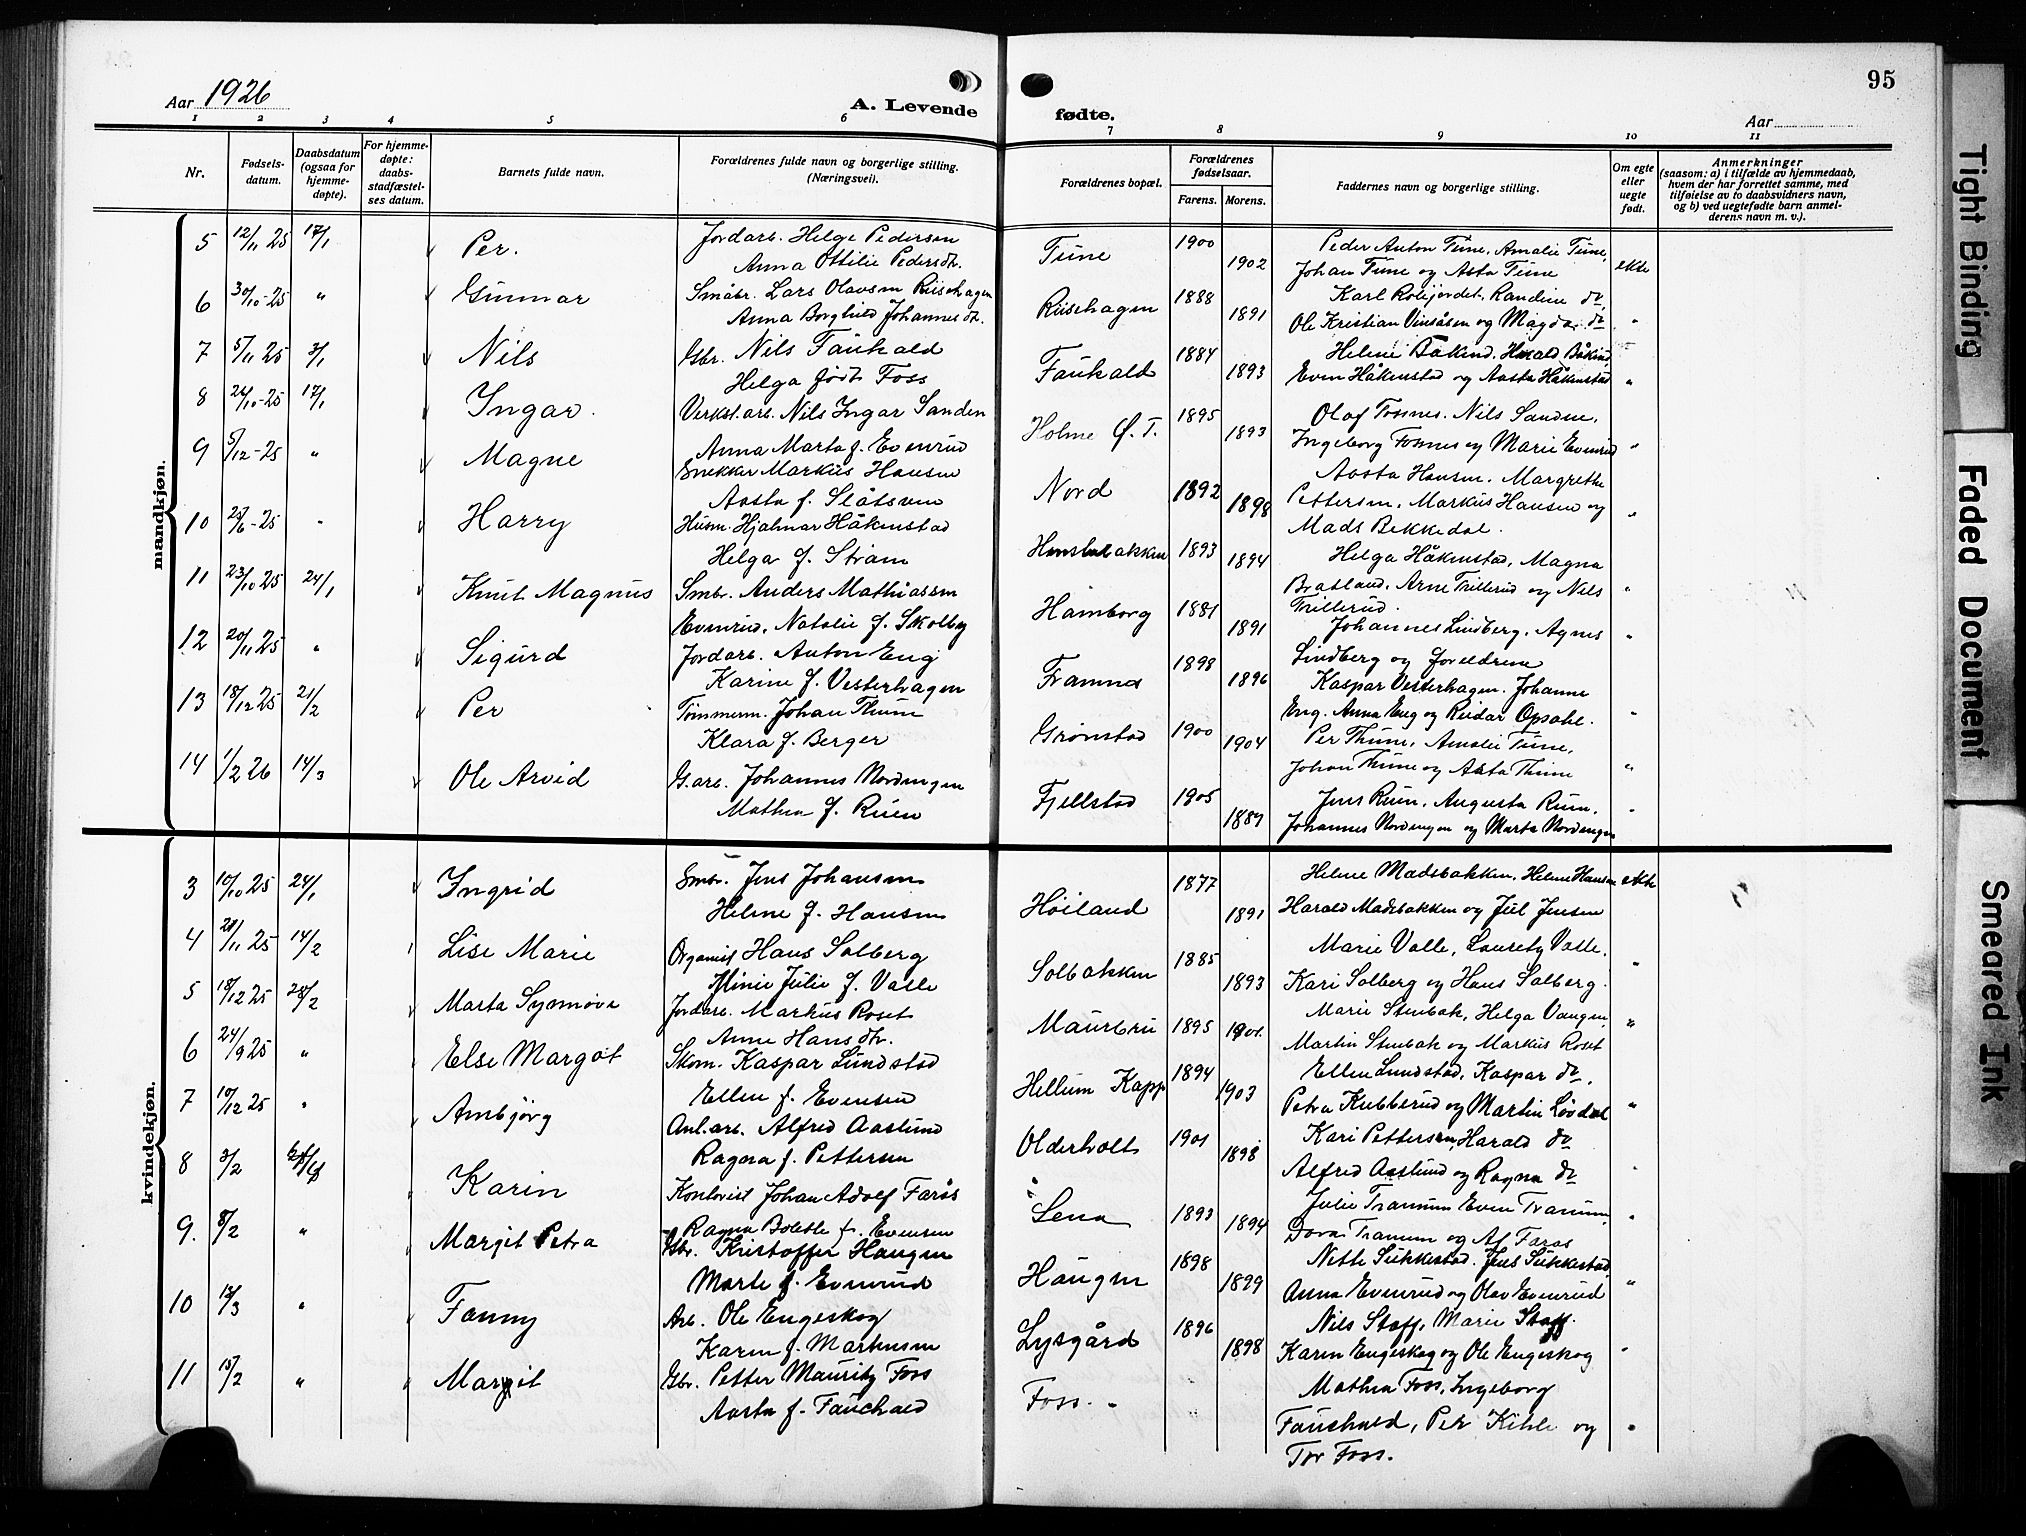 Aar 1926
A. Levende
fødte.
Aar
95
1 2 3 4 5 6 7 8 9 10 11
Nr.
Fødsels-
datum.
Daabsdatum
(ogsaa for
hjemme-
døpte).
For hjemme-
døpte:
daabs-
stadfæstel-
ses datum.
Barnets fulde navn.
Forældrenes fulde navn og borgerlige stilling.
(Næringsvei).
Forældrenes bopæl.
Forældrenes
fødselsaar.
Farens. Morens.
Faddernes navn og borgerlige stilling.
Om egte
eller
uegte
født.
Anmerkninger
(saasom: a) i tilfælde av hjemmedaab,
hvem der har forrettet samme, med
tilføielse av to daabsvidners navn,
og b) ved uegtefødte barn anmel-
derens navn m. v.).
mandkjøn.
5 12/11 25 17/1 Per. Jordarb. Helge Pedersen Tune 1900 Peder Anton Tune, Amalie Tune,
Anna Ottilie Pedersdtr. 1902 Johan Tune og Asta Tune ekte
6 30/10-25 " Gunnar Småbr. Lars Olavsen Riisehagen Riisehagen 1888 Karl Roliejordet, Randine do
Anna Borghild Johannesdtr. 1891 Ole Kristian Vinsåsen og Magda do "
7 5/11 25 3/1 Nils Gbr. Nils Faukald Faukald 1884 Helene Båkind, Harald Båkind
Helga født Foss 1893 Even Håkenstad og Aasta Håkenstad "
8 24/10-25 17/1 Ingar. Verkst.arb. Nils Ingar Sanden Holme Ø.T. 1895 Olaf Fossnes. Nils Sandne.
Anna Marta f. Evenrud 1893 Ingeborg Fossnes og Marie Evenrud "
9 5/12-25 " Magne Snekker Markus Hansen Nord 1892 Aasta Hansen. Margrethe
Aasta f. Slåtsveen 1898 Pettersen, Markus Hansen og "
Mads Bekkedal.
10 25/6-25 " Harry Husm. Hjalmar Håkenstad 1893 Helga Håkenstad, Magna
Helga f. Strøm 1894 Bratland, Arne Trillerud og Nils "
Trillerud.
11 23/10 25 24/1 Knut Magnus Smbr. Anders Mathiassen Hamborg 1881 Johannes Lindberg, Agnes
Evenrud, Natalie f. Skolby 1891 Lindberg og foreldrene "
12 20/11 25 " Sigurd Jordarb. Anton Eng Framnes 1898 Kaspar Vesterhagen. Johanne
Karine f. Vesterhagen 1896 Eng. Anna Eng og Reidar Opsahl. "
13 18/12 25 21/2 Per Tømmerm. Johan Thune Grønstad 1900 Per Thune, Amalie Tune,
Klara f. Berger 1904 Johan Thune og Asta Thune "
14 1/2 26 14/3 Ole Arvid G.arb. Johannes Nordengen Fjellstad 1905 Jens Ruen, Augusta Ruen,
Mathea f. Ruen 1889 Johannes Nordengen og Marta Nordengen "
kvindekjøn.
3 10/10 25 24/1 Ingrid Smbr. Jens Johansen Høiland 1877 Helene Madsbakken, Helene Hansen ekte
Helene f. Hansen 1891 Harald Madsbakken og Jul Jensen
4 21/11 25 14/2 Lise Marie Organist Hans Solberg Solbakken 1885 Marie Valle, Lauretz Valle.
Minie Julie f. Valle 1893 Kari Solberg og Hans Solberg. "
5 18/12 25 28/2 Marta Synnøve Jordarb. Markus Roset Maurbru 1895 1901. Marie Stenbak, Helga Vangen, "
Anne Hansdtr. Martin Stenbak og Markus Roset
6 24/9 25 " Else Margot Skom. Kaspar Lundstad Hellum Kapp 1894 Ellen Lundstad, Kaspar do.
Ellen f. Evensen 1903 Petra Kubberud og Martin Løvdal "
7 10/12 25 " Ambjørg Anl.arb. Alfred Aaslund Olderholt 1901 Kari Pettersen, Harald do
Ragna f. Pettersen 1898 Alfred Aaslund og Ragna do "
8 3/2 Karin Johan Adolf Farås Lena 1893 Julie Tranum Even Tranum,
Ragna Bolette f. Evensen 1894 Dora Tranum og A. Faraas "
9. 8/2 " Margit Petra Gbr. Kristoffer Haugen Haugen 1898 Nette Sukkestad. Jens Sukkestad,
Marte f. Evenrud 1899 Anna Evenrud og Olav Evenrud "
10 12/3 " Fanny Arb. Ole Engeskog Lysgård 1896 Nils Staff, Marie Staff.
Karen f. Markusen 1898 Karen Engeskog og Ole Engeskog "
11 15/2 " Margit Gbr. Petter Mauritz Foss Foss. Mathea Foss, Ingeborg
Aasta f. Fauchald Fauchald, Per Kihle og "
Tor Foss.
Tight Binding
Faded Document
Smeared Ink